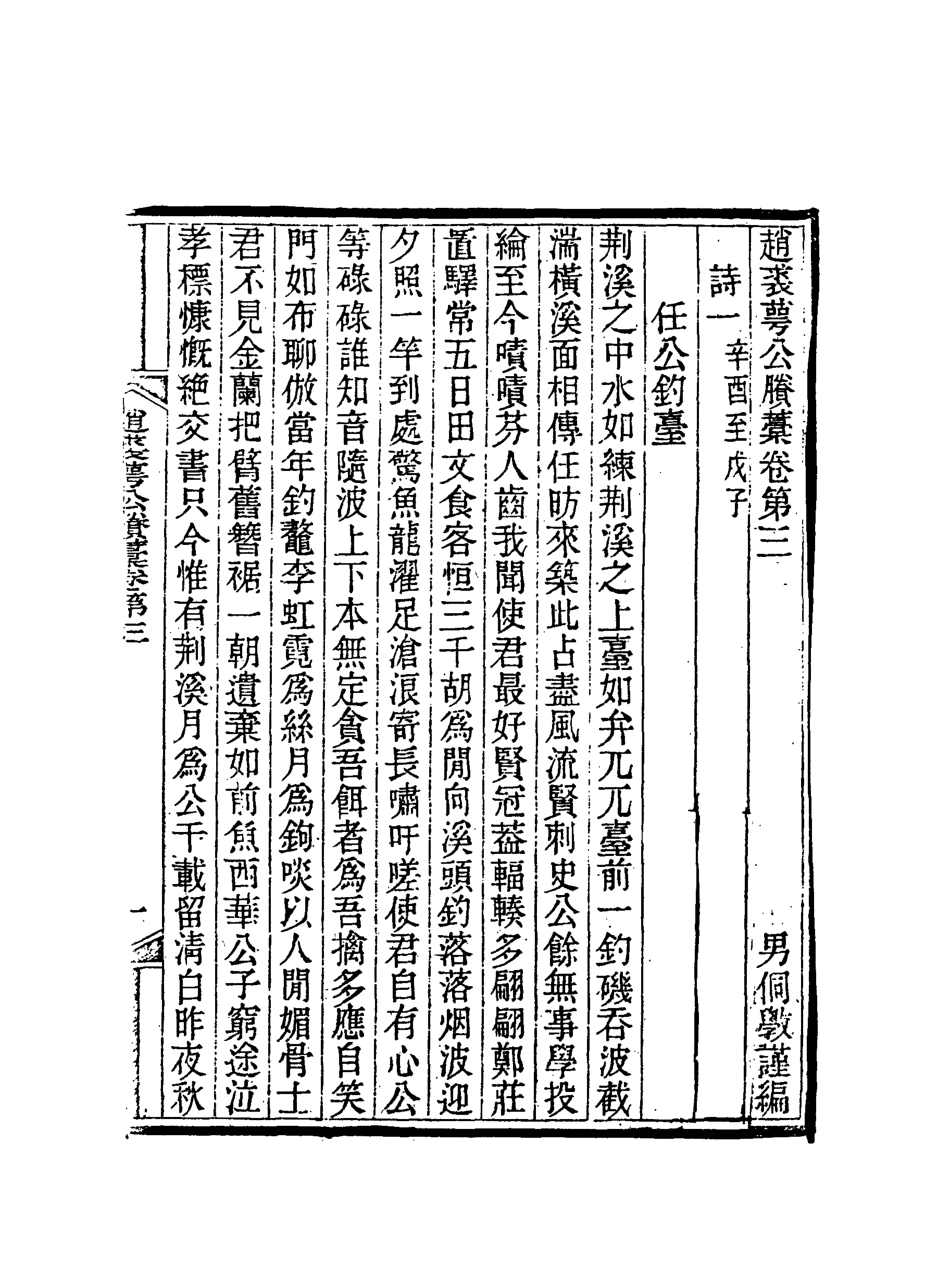 趙裘萼公賸藁卷第三 男侗斆謹編
詩一 辛酉至戊子
任公釣臺
荆溪之中水如練荆溪之上臺如弁兀兀臺前一釣磯吞波截
湍橫溪面相傳任昉來築此占盡風流賢刺史公餘無事學投
綸至今嘖嘖芬人齒我聞使君最好賢冠葢輻輳多翩翩鄭莊
置驛常五日田文食客恒三千胡爲閒向溪頭釣落落烟波迎
夕照一竿到處驚魚龍濯足滄浪寄長嘯吁嗟使君自有心公
等碌碌誰知音隨波上下本無定貪吾餌者爲吾擒多應自笑
門如布聊倣當年釣鼇李虹霓爲絲月爲鉤啖以人閒媚骨士
君不見金蘭把臂舊簪裾一朝遺棄如前魚西華公子窮途泣
孝標慷慨絶交書只今惟有荆溪月爲公千載留淸白昨夜秋
趙裘萼公賸藁卷第三 一